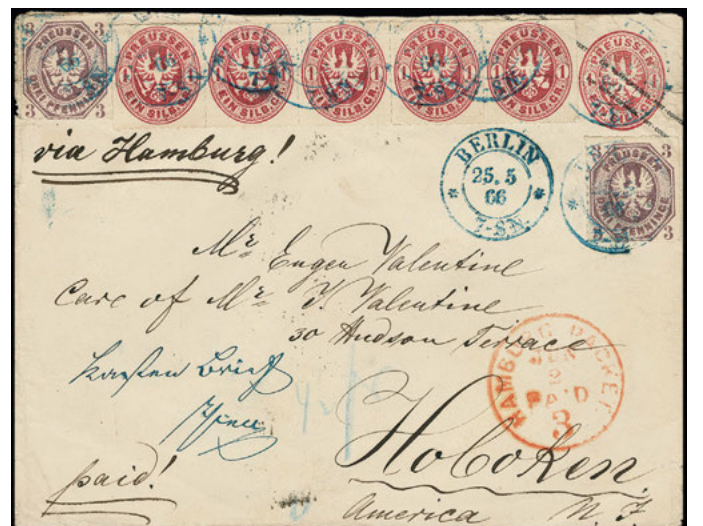 3 PREUSSEN 3
3 DREI PFENNINGE 3
PREUSSEN
1 1
EIN SILB.GR.
PREUSSEN
1 1
EIN SILB.GR.
PREUSSEN
1 1
EIN SILB.GR.
PREUSSEN
1 1
EIN SILB.GR.
PREUSSEN
1 1
EIN SILB.GR.
PREUSSEN
1 1
EIN SILB.GR.
via Hamburg!
BERLIN
25.5
66
7-8N.
3
PREUSSEN
DREI PFENNINGE
3
Mr. Eugen Valentine
Care of Mr. J. Valentine
30 Hudson Terrace
Kasten Brief
HAMBURG PACKET
JUN
2
PAID
3
Hoboken
paid!
America N. J.